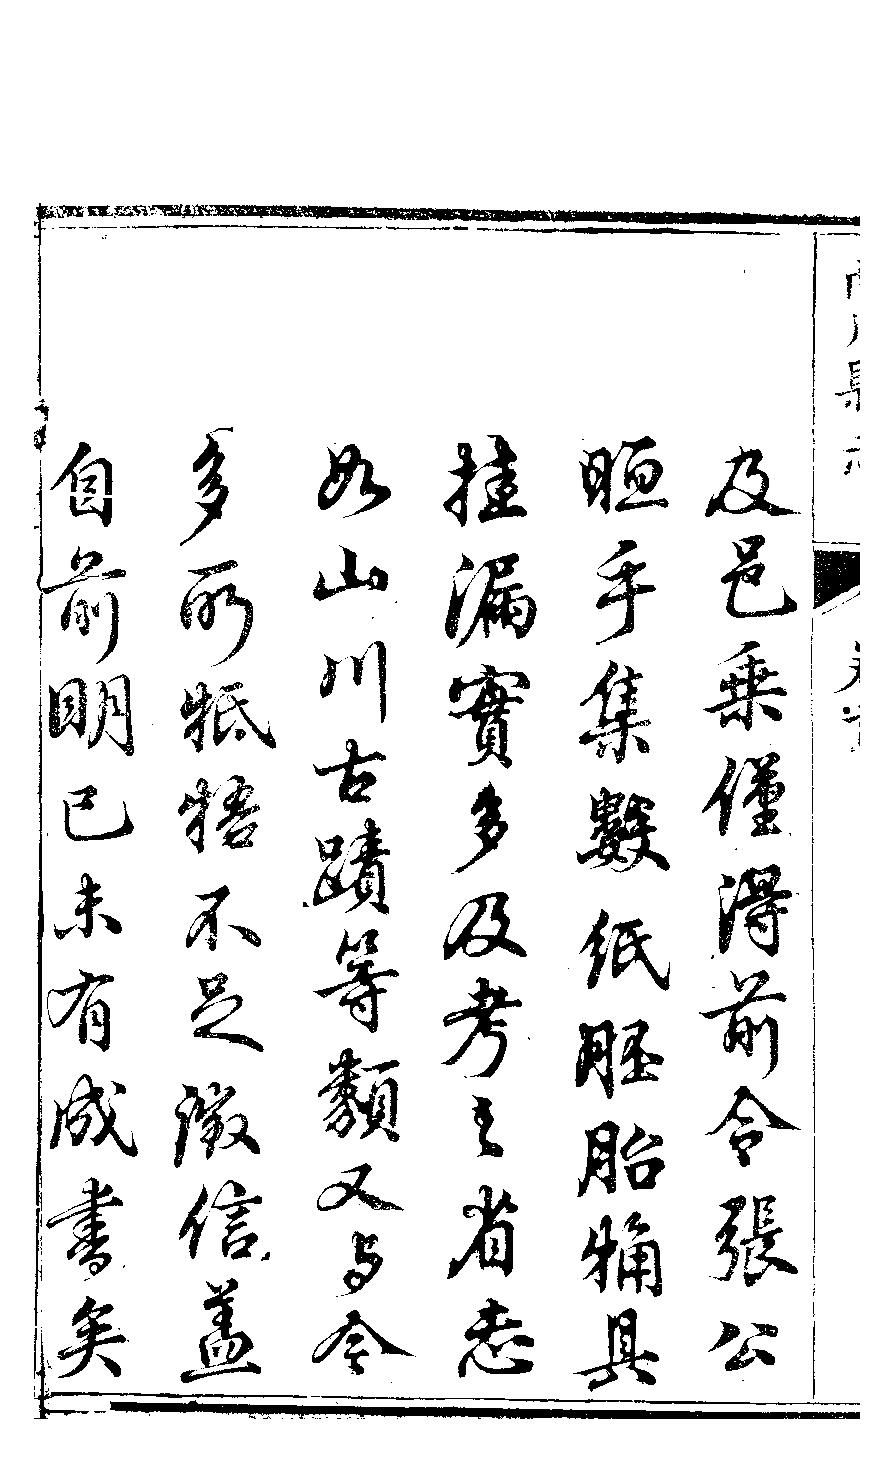 及邑乘僅得前令張公
晅手集數紙胚胎觕具
挂漏實多及考之省志
如山川古蹟等類又与今
多所牴牾不足徵信盖
自前明已未有成書矣